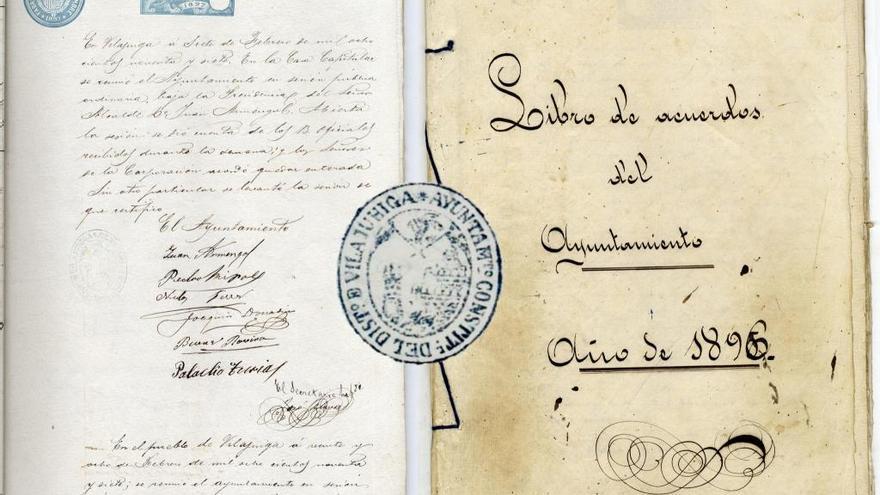 1897
En Vilajuiga á siete de Febrero de mil ocho
cientos noventa y siete. En la Casa Capitular
se reunió el Ayuntamiento en sesión publica
ordinaria, bajo la Presidencia del Señor
Alcalde D. Juan Armengol. Abierta
la sesión se dió cuenta de los B. Oficiales
recibidos durante la semana; y los Señores
de la Corporación acordó quedar enterada
Sin otro particular se levantó la sesión de
que certifico.
El Ayuntamiento
Juan Armengol
Pedro
Joaquin
Paladio
El Secretario
José
En el pueblo de Vilajuiga á veinte y
ocho de Febrero de mil ocho cientos noventa
y siete; se reunió el ayuntamiento en sesión
AYUNTAMTO CONSTITL DEL DISTO DE VILAJUHIGA
Libro de acuerdos
del
Ayuntamiento
Año de 1896.